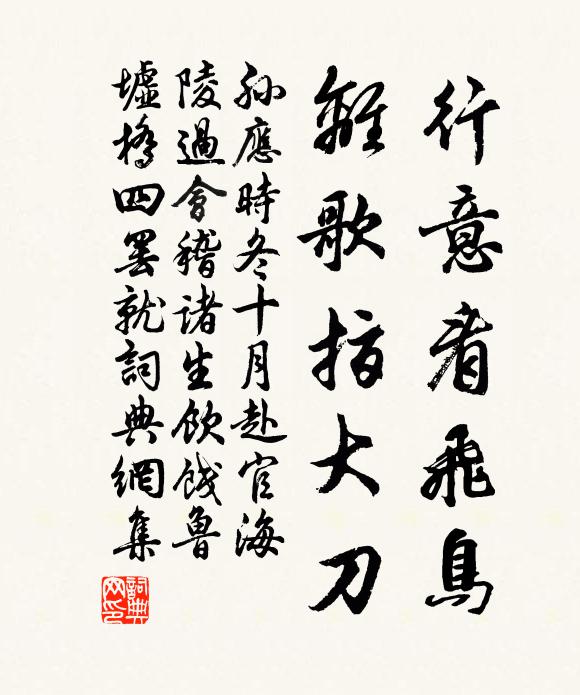 行意看飛鳥
離歌指大刀
孫應時冬十月赴官海
陵過會稽諸生飲餞魯
墟橋四罢就詞典網集
詞典网印